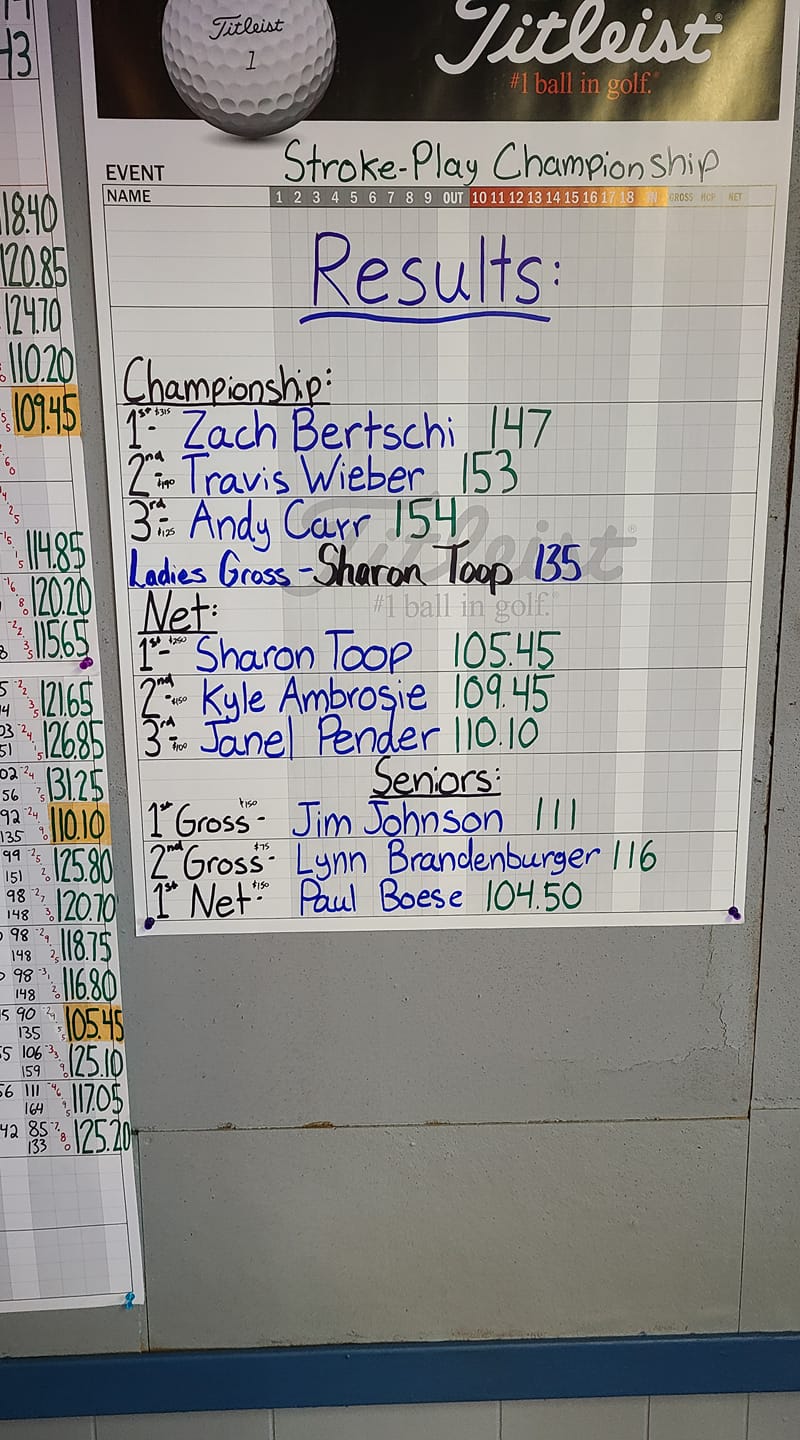 Titleist
1
Titleist
#1 ball in golf.
EVENT Stroke-Play Championship
NAME 1 2 3 4 5 6 7 8 9 OUT 10 11 12 13 14 15 16 17 18 IN GROSS HCP NET
Results:
Championship:
1st $315 - Zach Bertschi 147
2nd $190 - Travis Wieber 153
3rd $125 - Andy Carr 154
Ladies Gross - Sharon Toop 135
Titleist
#1 ball in golf.
Net:
1st $250 - Sharon Toop 105.45
2nd $150 - Kyle Ambrosie 109.45
3rd $100 - Janel Pender 110.10
Seniors:
1st Gross $150 - Jim Johnson 111
2nd Gross $75 - Lynn Brandenburger 116
1st Net $150 - Paul Boese 104.50
43
118.40
120.85
124.70
110.20
109.45
114.85
120.20
115.65
121.65
126.85
131.25
110.10
125.80
120.70
118.75
116.80
105.45
125.10
117.05
125.20